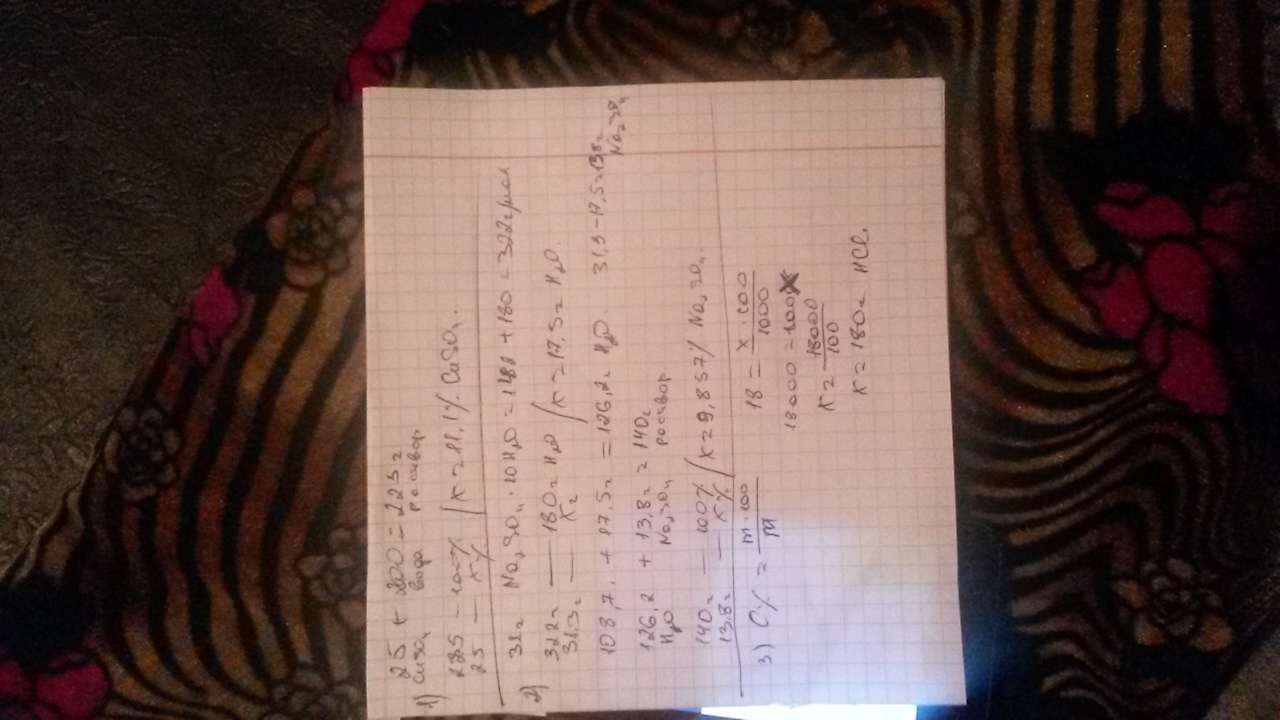 1) 25 + 200 = 225г
CuSO₄ вода раствор
225 – 100%
25 – x% / x = 11,1% CuSO₄.
Na₂SO₄ · 10H₂O = 142 + 180 = 322г/мол
2) 322г — 180г H₂O
31,3г — xг / x = 17,5г H₂O.
108,7. + 17,5г = 126,2г H₂O. 31,3 – 17,5 = 13,8г
Na₂SO₄
126,2 + 13,8г = 140г
H₂O Na₂SO₄ раствор.
140г — 100%
13,8г — x% / x = 9,857% Na₂SO₄
3) C% = m·100 / M 18 = x·100 / 1000
18000 = 100x
x = 18000 / 100
x = 180г HCl.